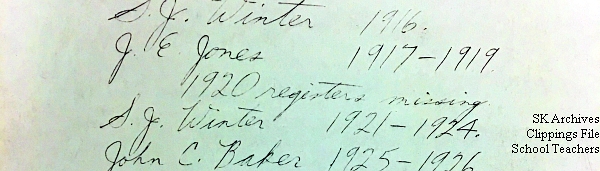 S. J. Winter 1916.
J. E. Jones 1917-1919.
1920 registers missing
S. J. Winter 1921-1924.
John C. Baker 1925-1926
SK Archives
Clippings File
School Teachers